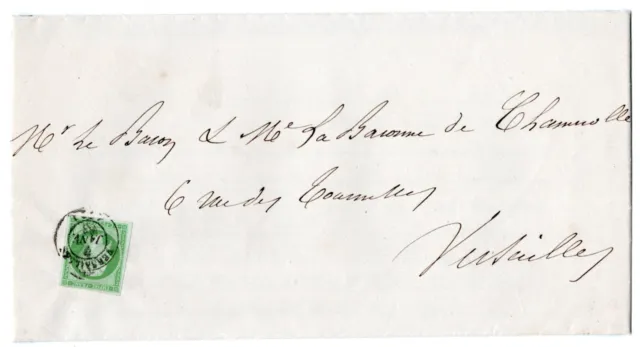 Mr Le Baron & Me La Baronne de Chamerolle
6 rue des Tournelles
Versailles
JANV.